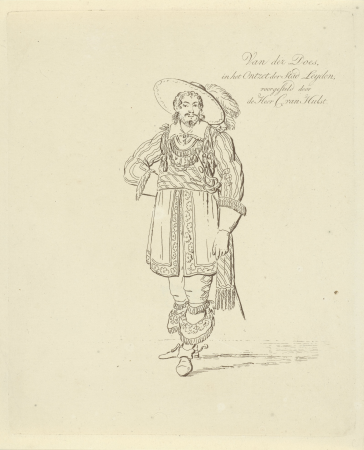 Van der Does,
in het Ontzet der Stac Leyden,
voorgesteld door
de Heer C. van Hulst